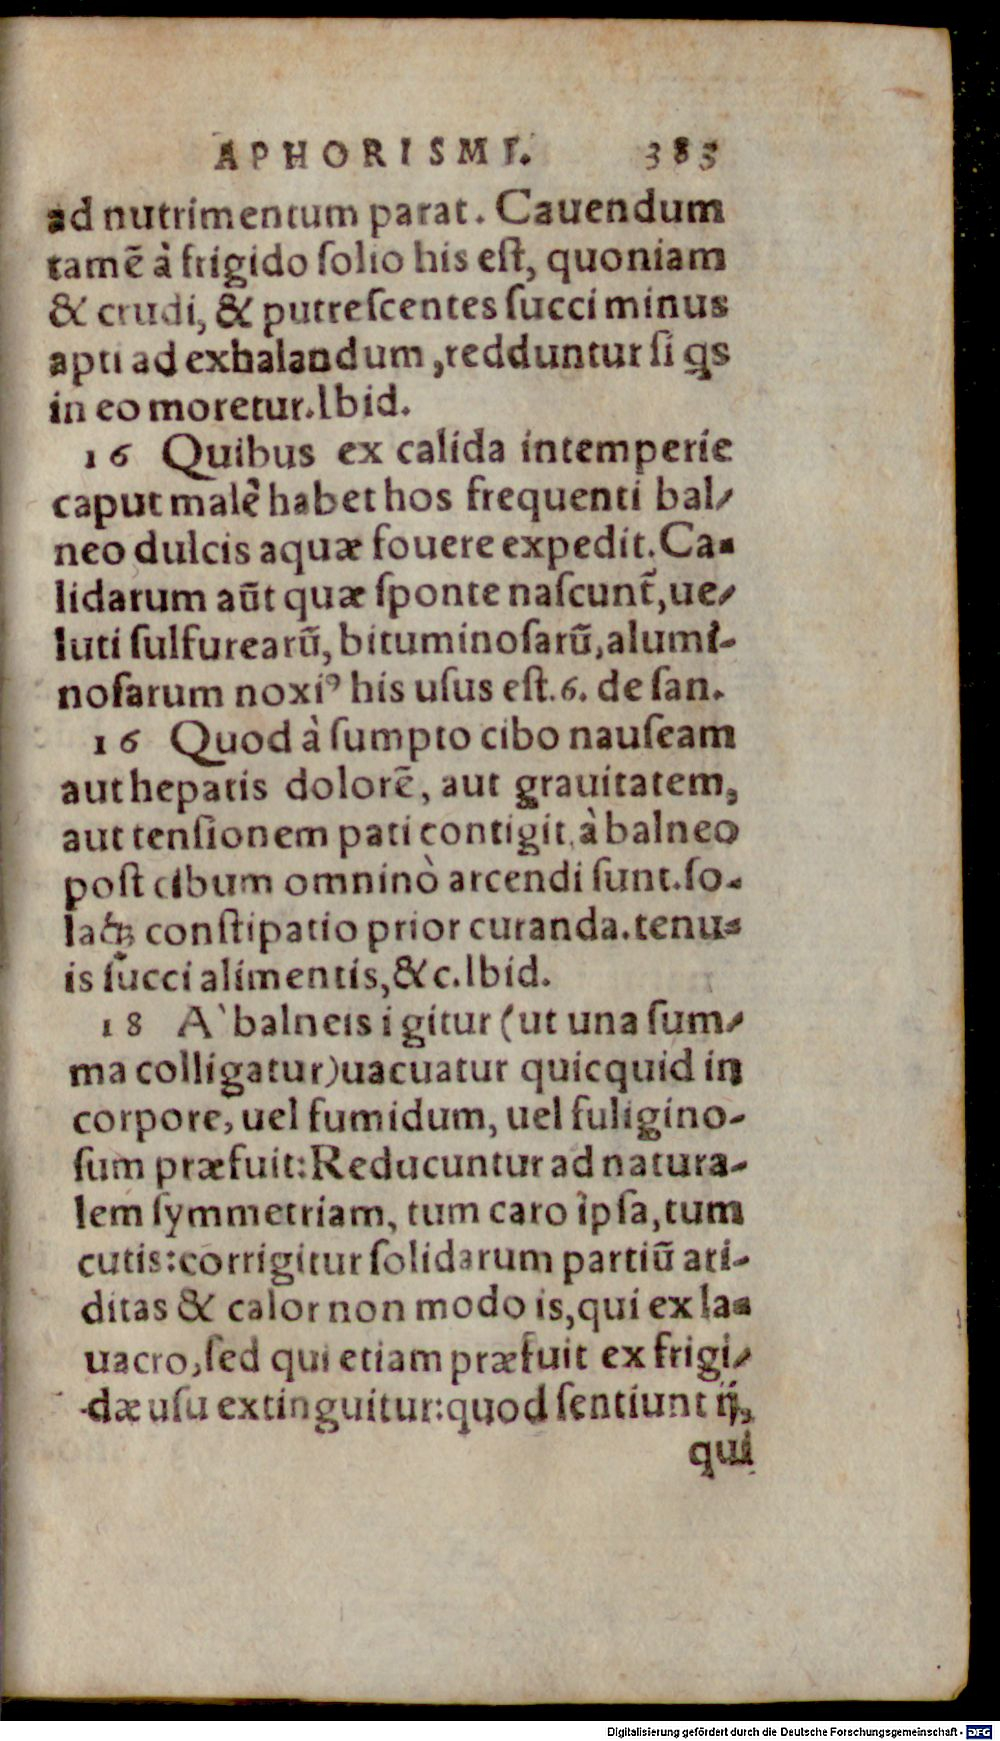 APHORISMI. 385
ad nutrimentum parat. Cauendum
tamē à frigido ſolio his eſt, quoniam
& crudi, & putreſcentes ſucci minus
apti ad exhalandum, redduntur ſi qs
in eo moretur. Ibid.
16 Quibus ex calida intemperie
caput malè habet hos frequenti bal⸗
neo dulcis aquæ fouere expedit. Ca⸗
lidarum aūt quæ ſponte naſcunt̃, ue⸗
luti ſulfurearū, bituminoſarū, alumi⸗
noſarum noxiꝰ his uſus eſt. 6. de ſan.
16 Quod à ſumpto cibo nauſeam
aut hepatis dolorē, aut grauitatem,
aut tenſionem pati contigit, à balneo
poſt cibum omninò arcendi ſunt. ſo⸗
laq́ꝫ conſtipatio prior curanda. tenu⸗
is ſucci alimentis, &c. Ibid.
18 A` balneis igitur (ut una ſum⸗
ma colligatur) uacuatur quicquid in
corpore, uel fumidum, uel fuligino⸗
ſum præfuit: Reducuntur ad natura⸗
lem ſymmetriam, tum caro ipſa, tum
cutis: corrigitur ſolidarum partiū ari⸗
ditas & calor non modo is, qui ex la⸗
uacro, ſed qui etiam præfuit ex frigi⸗
dæ uſu extinguitur: quod ſentiunt ij,
qui
Digitalisierung gefördert durch die Deutsche Forschungsgemeinschaft - DFG